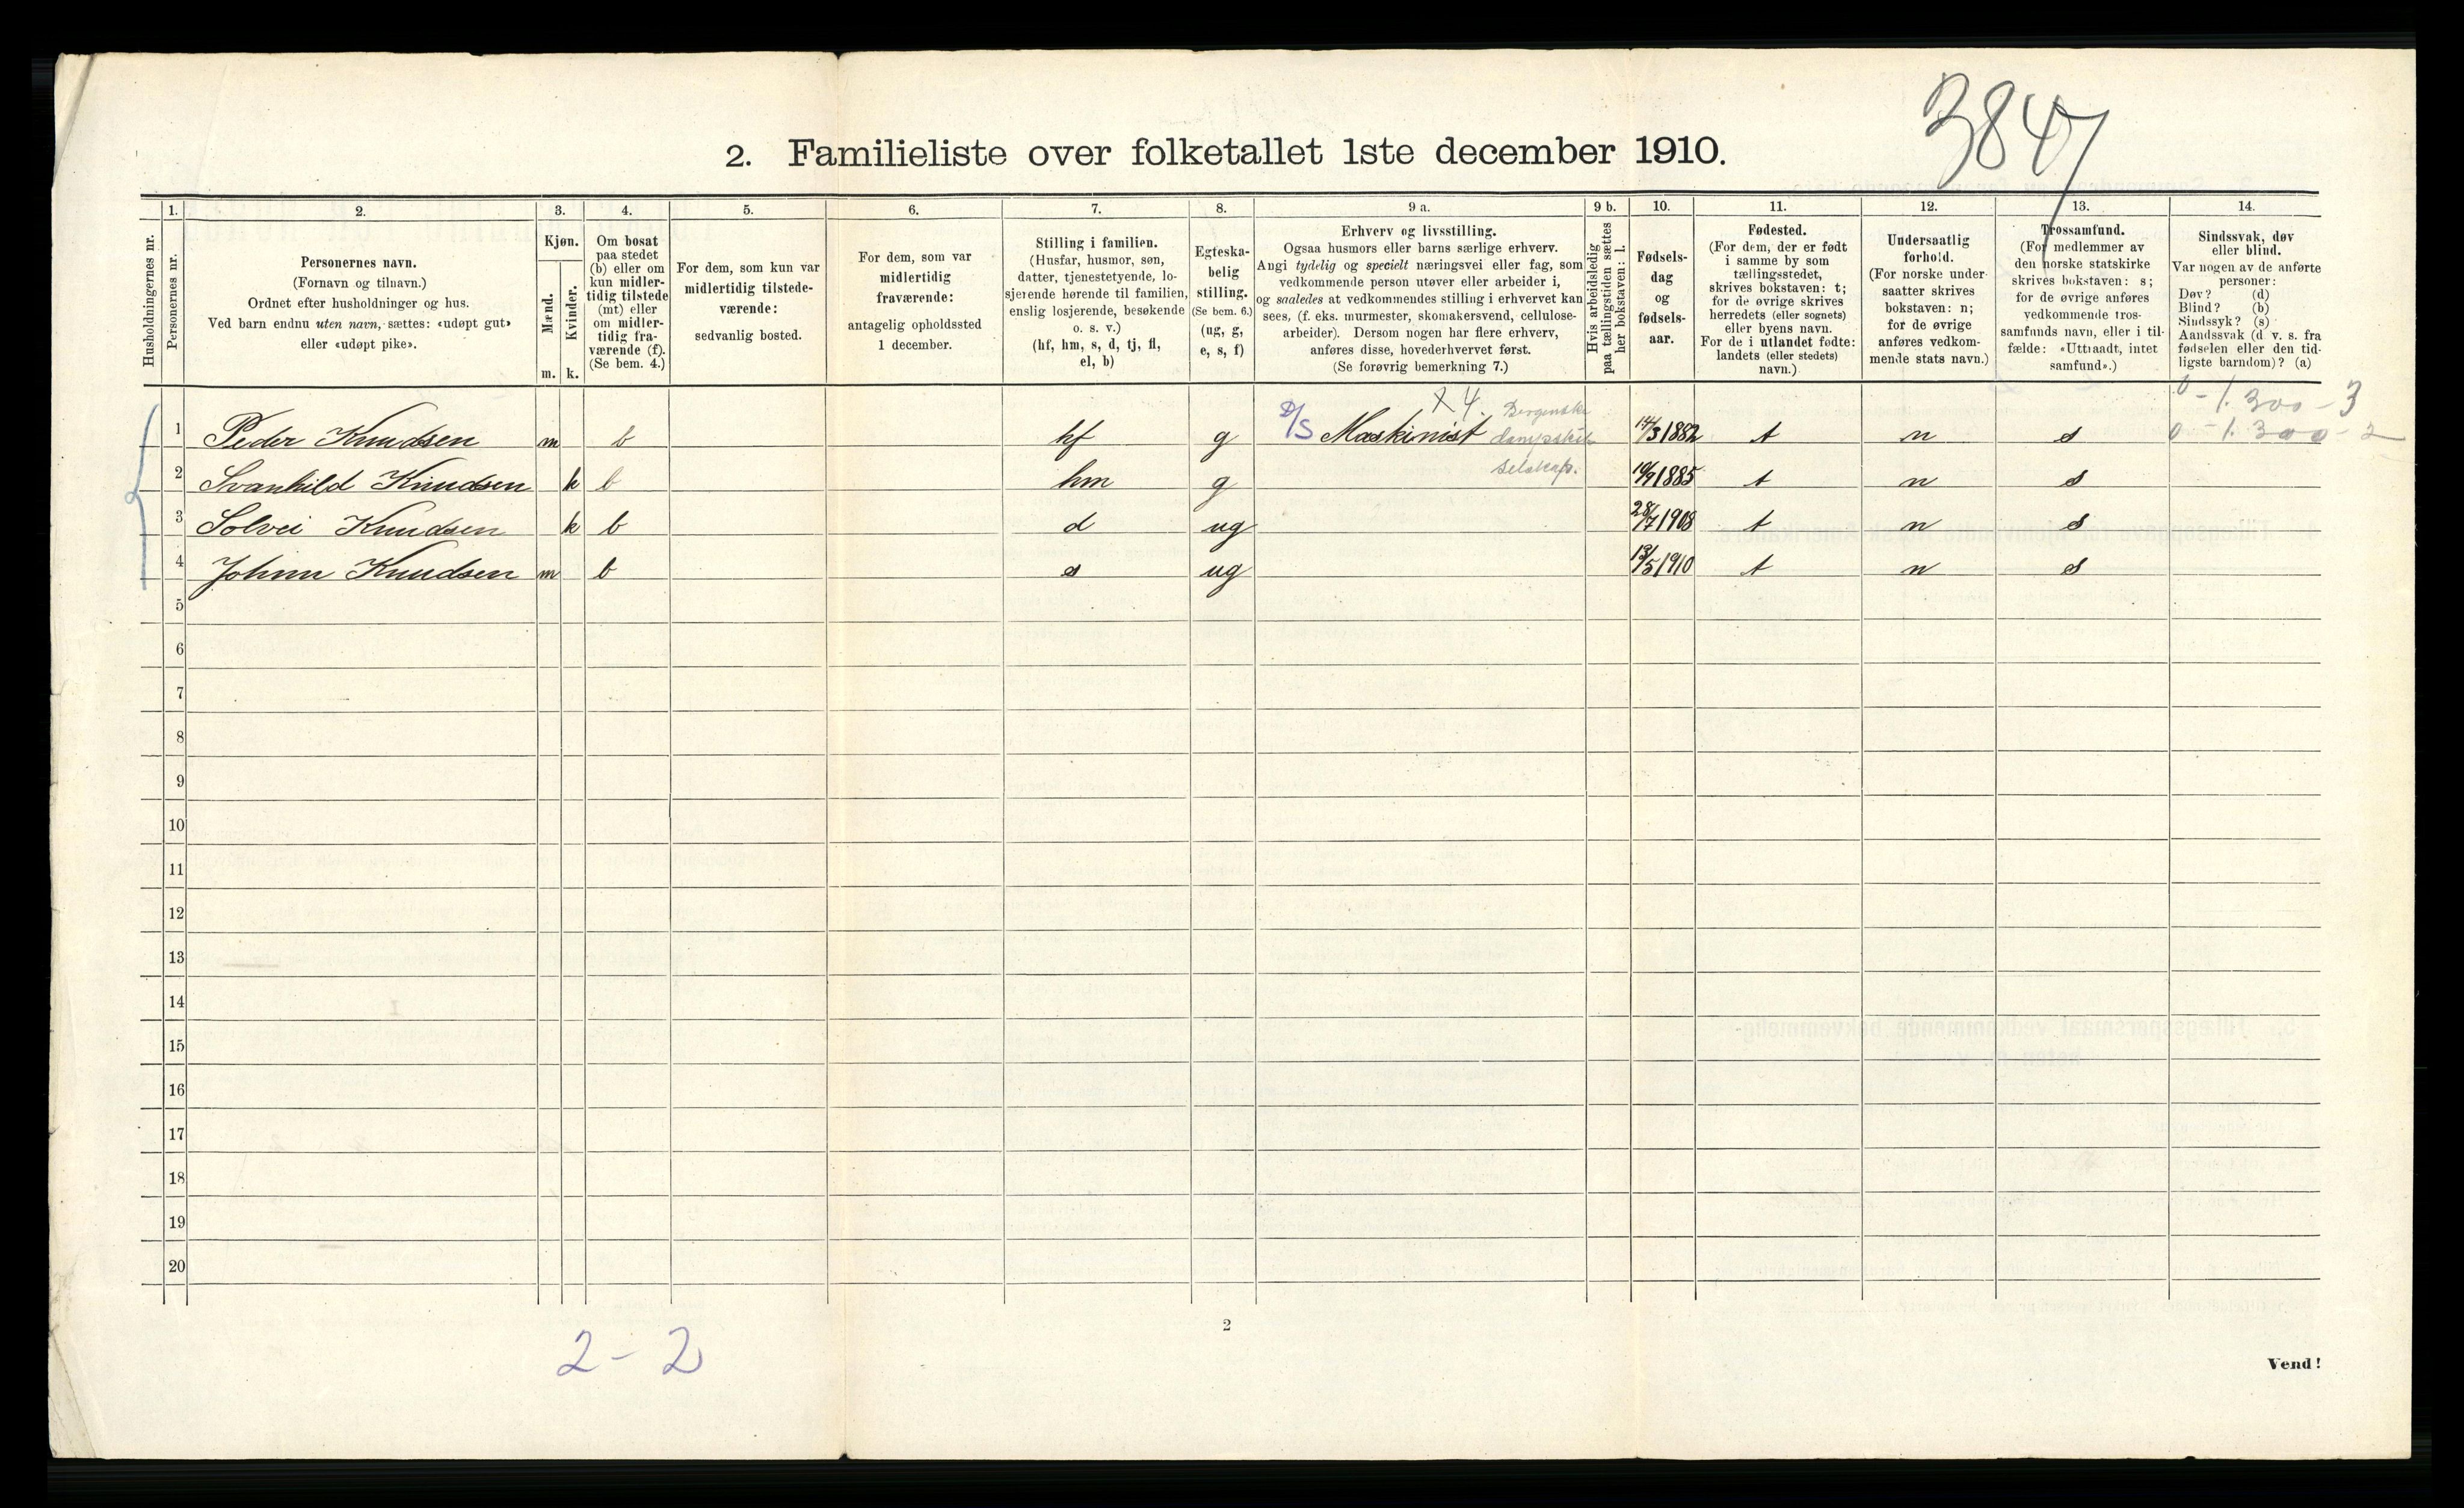 3847
2. Familieliste over folketallet 1ste december 1910.
Husholdningernes nr.
1. Personernes nr.
2. Personernes navn.
(Fornavn og tilnavn.)
Ordnet efter husholdninger og hus.
Ved barn endnu uten navn, sættes: «udøpt gut»
eller «udøpt pike».
3. Kjøn.
Mænd. m.
Kvinder. k.
4. Om bosat
paa stedet
(b) eller om
kun midler-
tidig tilstede
(mt) eller
om midler-
tidig fra-
værende (f).
(Se bem. 4.)
5. For dem, som kun var
midlertidig tilstede-
værende:
sedvanlig bosted.
6. For dem, som var
midlertidig
fraværende:
antagelig opholdssted
1 december.
7. Stilling i familien.
(Husfar, husmor, søn,
datter, tjenestetyende, lo-
sjerende hørende til familien,
enslig losjerende, besøkende
o. s. v.)
(hf, hm, s, d, tj, fl,
el, b)
8. Egteska-
belig
stilling.
(Se bem. 6.)
(ug, g,
e, s, f)
9 a. Erhverv og livsstilling.
Ogsaa husmors eller barns særlige erhverv.
Angi tydelig og specielt næringsvei eller fag, som
vedkommende person utøver eller arbeider i,
og saaledes at vedkommendes stilling i erhvervet kan
sees, (f. eks. murmester, skomakersvend, cellulose-
arbeider). Dersom nogen har flere erhverv,
anføres disse, hovederhvervet først.
(Se forøvrig bemerkning 7.)
9 b. Hvis arbeidsledig
paa tællingstiden sættes
her bokstaven: l.
10. Fødsels-
dag
og
fødsels-
aar.
11. Fødested.
(For dem, der er født
i samme by som
tællingsstedet,
skrives bokstaven: t;
for de øvrige skrives
herredets (eller sognets)
eller byens navn.
For de i utlandet fødte:
landets (eller stedets)
navn.)
12. Undersaatlig
forhold.
(For norske under-
saatter skrives
bokstaven: n;
for de øvrige
anføres vedkom-
mende stats navn.)
13. Trossamfund.
(For medlemmer av
den norske statskirke
skrives bokstaven: s;
for de øvrige anføres
vedkommende tros-
samfunds navn, eller i til-
fælde: «Uttraadt, intet
samfund».)
14. Sindssvak, døv
eller blind.
Var nogen av de anførte
personer:
Døv? (d)
Blind? (b)
Sindssyk? (s)
Aandssvak (d. v. s. fra
fødselen eller den tid-
ligste barndom)? (a)
0 - 1.300 - 3
X 4. Bergenske
1 Peder Knudsen m b hf g D/S Maskinist dampskib 14/3 1882 t n s 0 - 1.300 - 2
selskap.
2 Svanhild Knudsen k b hm g 10/9 1885 t n s
3 Solvei Knudsen k b d ug 28/7 1908 t n s
4 Johan Knudsen m b s ug 13/5 1910 t n s
5
6
7
8
9
10
11
12
13
14
15
16
17
18
19
20
2
2 - 2
Vend!